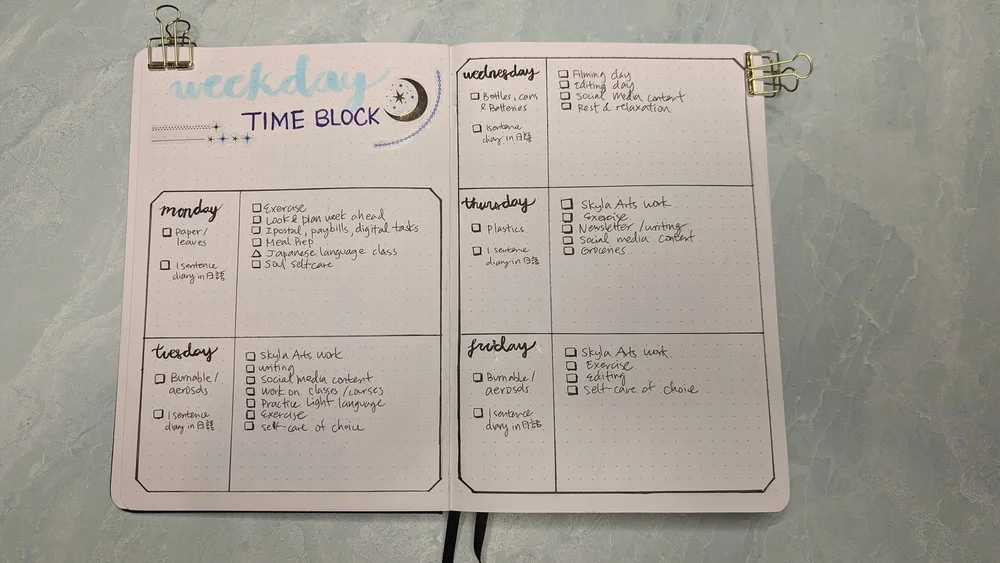 weekday
TIME BLOCK
monday
Paper/
leaves
1 sentence
diary in 日語
Exercise
Look & plan week ahead
Ipostal, pay bills, digital tasks
Meal Prep
Japanese language class
Soul selfcare
tuesday
Burnable/
aerosols
1 sentence
diary in 日語
Skyla Arts work
writing
Social media content
work on classes/courses
Practice Light language
Exercise
self-care of choice
wednesday
Bottles, cans
& Batteries
1 sentence
diary in 日語
Filming day
Editing day
Social Media content
Rest & relaxation
thursday
Plastics
1 sentence
diary in 日語
Skyla Arts work
Exercise
Newsletter/writing
Social media content
Groceries
friday
Burnable/
aerosols
1 sentence
diary in 日語
Skyla Arts work
Exercise
Editing
self care of choice